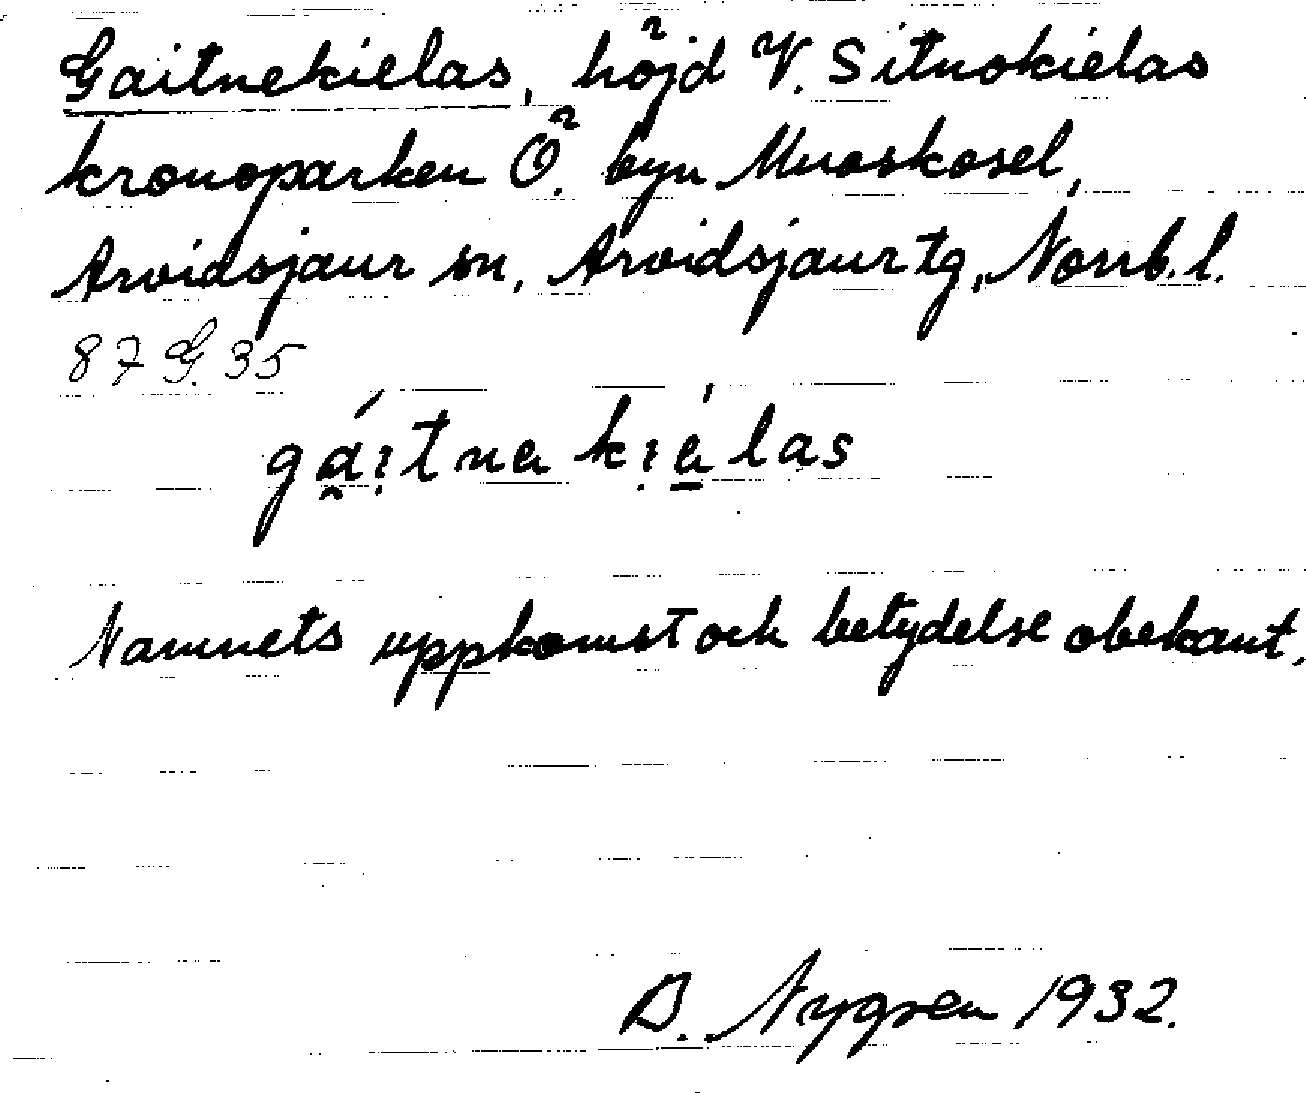 Gaitnekielas, höjd V. Sitnokielas
kronoparken Ö. byn Muoskosel,
Arvidsjaur sn, Arvidsjaur tg, Norrb. l.
87 G. 35
gáitnekiélas
Namnets uppkomst och betydelse obekant.
B. Nygren 1932.